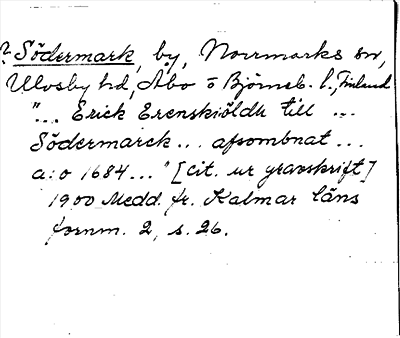 ? Södermark, by, Norrmarks sn,
Ulvsby hd, Åbo o Björneb. l., Finland
"... Erick Erenskiöldh till ...
Södermarck ... afsombnat ...
a:o 1684 ..." [cit. ur gravskrift]
1900 Medd. fr. Kalmar läns
fornm. 2, s. 26.